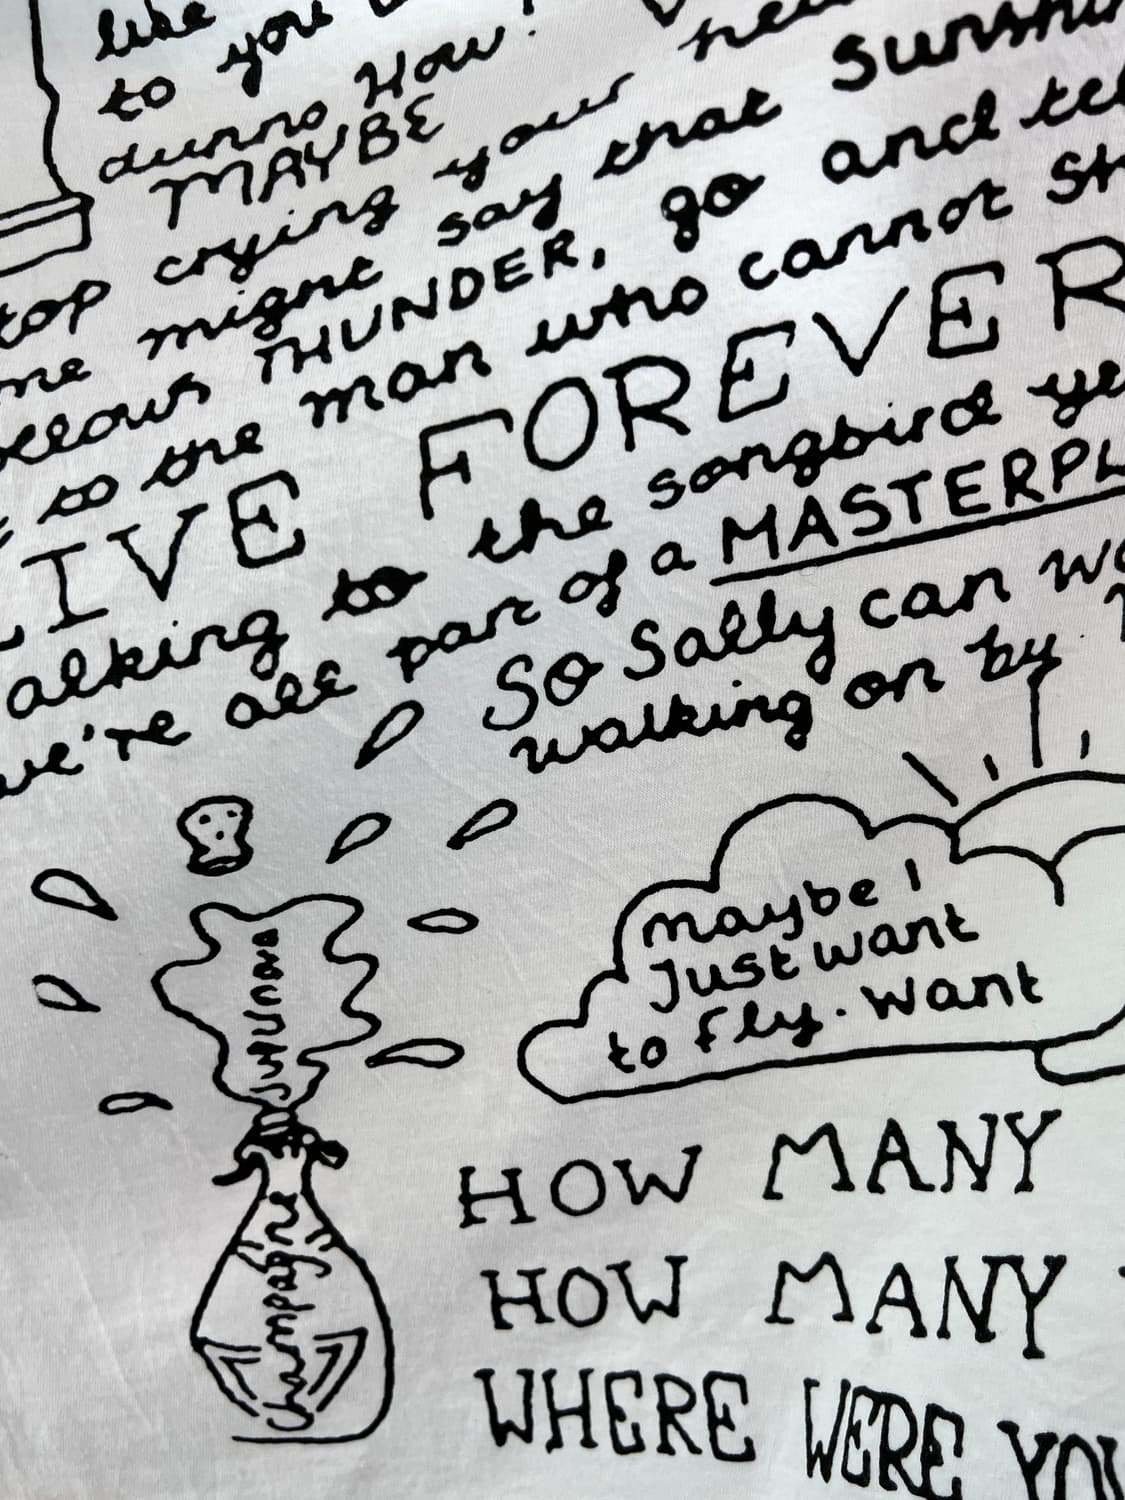 like
to you
dunno How!
MAYBE
top crying your
me might say that sunshi
ellows THUNDER, go and te
to the man who cannot sh
LIVE FOREVER
alking to the songbird ye
we're all part of a MASTERPL
So Sally can
walking on by
maybe I
Just want
to fly. Want
Supernova
Champagne
HOW MANY
HOW MANY
WHERE WERE YOU